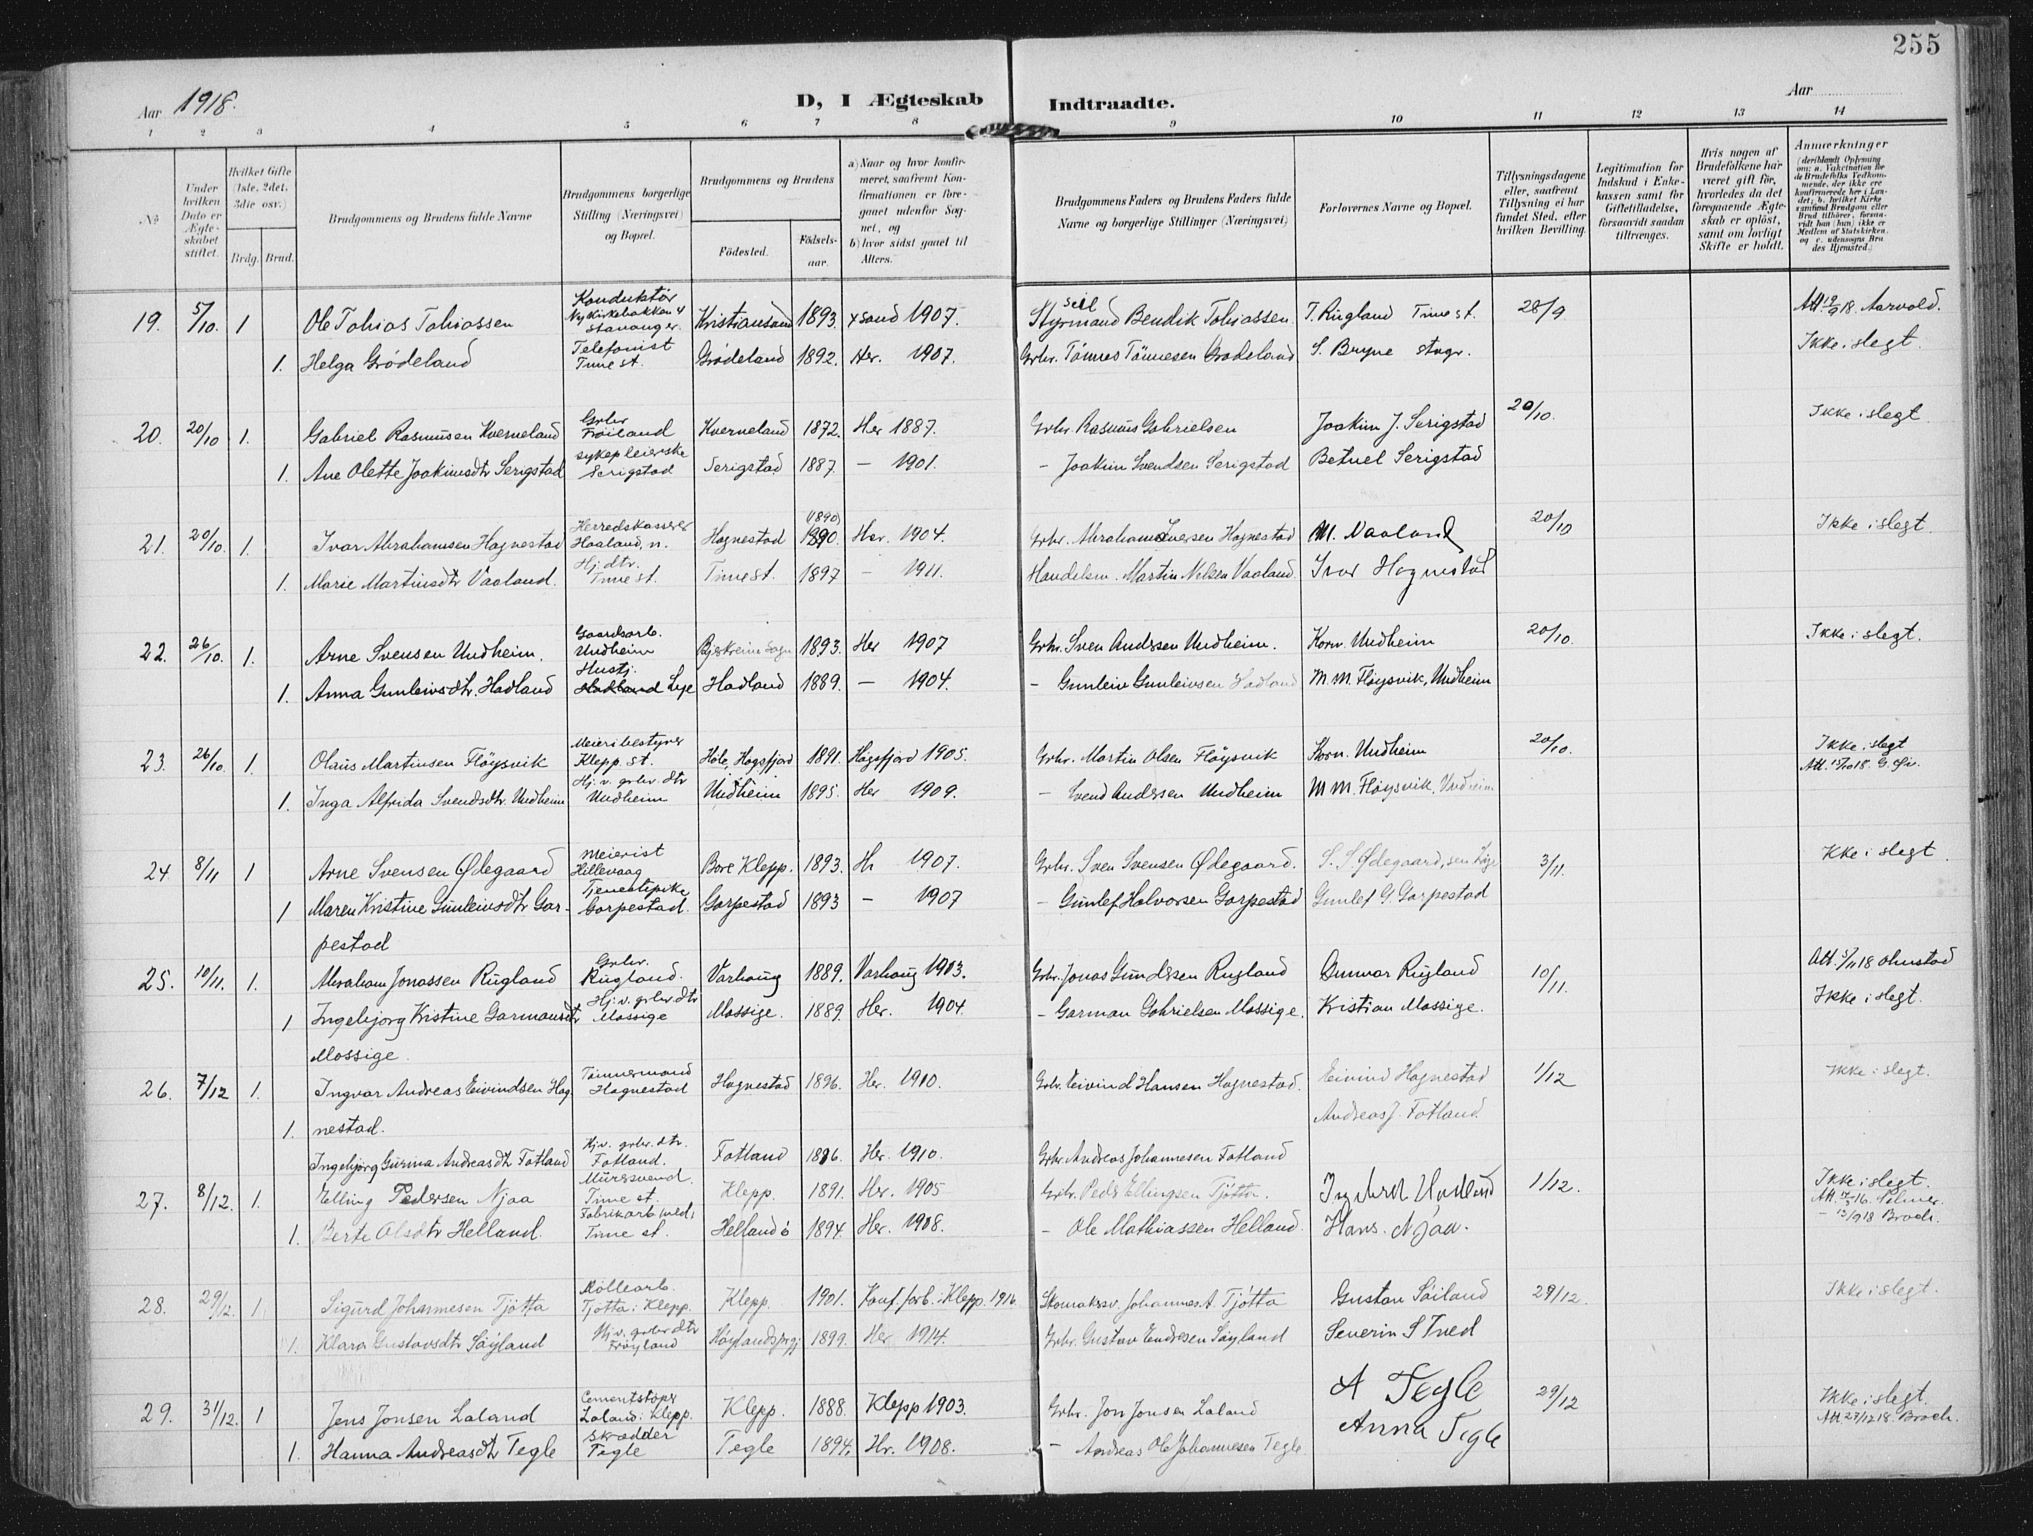 255
Aar 1918. D, I Ægteskab Indtraadte. Aar
1 2 3 4 5 6 7 8 9 10 11 12 13 14
No. Under hvilken Dato er Ægteskabet stiftet. Hvilket Gifte (1ste, 2det, 3die osv.) Brdg. Brud. Brudgommens og Brudens fulde Navne Brudgommens borgerlige Stilling (Næringsvei) og Bopæl. Brudgommens og Brudens Fødested. Fødselsaar. a) Naar og hvor konfirmeret, saafremt Konfirmationen er foregaaet udenfor Sognet, og b) hvor sidst gaaet til Alters. Brudgommens Faders og Brudens Faders fulde Navne og borgerlige Stillinger (Næringsvei) Forlovernes Navne og Bopæl. Tillysningsdagene eller, saafremt Tillysning ei har fundet Sted, efter hvilken Bevilling. Legitimation for Indskud i Enkekassen samt for Giftetilladelse, forsaavidt saadan tiltrænges. Hvis nogen af Brudefolkene har været gift før, hvorledes da det foregaaende Ægteskab er opløst, samt om lovligt Skifte er holdt. Anmerkninger
19. 5/10. 1 Ole Tobias Tobiassen Konduktør Ny Kirkebakken 4 Stavanger Kristiansand 1893. xsand 1907. Styrmand Bendik Tobiassen T. Rugland Time st. 28/9 Att 12/9 18. Aarvold.
1. Helga Grødeland Telefonist Time st. Grødeland 1892. Her. 1907. Grbr. Tønnes Tønnesen Grødeland S. Bryne Stvgr. Ikke i slegt.
20. 20/10 1. Gabriel Rasmusen Kverneland Grbr Frøiland Kverneland 1872. Her 1887. Grbr. Rasmus Gabrielsen Joakim J. Serigstad 20/10. Ikke i slegt
1. Ane Olette Joakimsdtr Serigstad sykepleierske Serigstad Serigstad 1887. — 1901. – Joakim Svendsen Serigstad Betuel Serigstad
21. 20/10. 1. Ivar Abrahamsen Hognestad Herredskasserer Haaland, n. Hognestad 1890. (1890) Her. 1904. Grbr. Abraham Iversen Hognestad M. Vaaland 20/10 Ikke i slegt.
1. Marie Martinsdtr Vaaland. Hj. dtr. Time st. Time st. 1897 – 1911. Handelsm. Martin Nilsen Vaaland Ivar Hognestad
22. 26/10. 1. Arne Svensen Undheim. Gaardsarb. Undheim Bjerkreim sogn 1893. Her 1907 Grbr. Sven Andersen Undheim. Korn. Undheim 20/10. Ikke i slegt.
1. Anna Gunleivsdtr. Hadland Hustj. Lye Hadland 1889. — 1904. – Gunleiv Gunleivsen Hadland M. M. Fløysvik, Undheim
23. 26/10. 1. Olaus Martinsen Fløysvik Meieribestyrer Klepp st. Høle, Høgsfjord 1891. Høgsfjord 1905. Grbr. Martin Olsen Fløysvik Korn. Undheim 20/10. Ikke i slegt
1. Inga Alfrida Svendsdtr. Undheim Hj. v. grbr dtr Undheim Undheim 1895. Her 1909. – Svend Andersen Undheim M. M. Fløysvik, Undheim
24. 8/11 1 Arne Svensen Ødegaard Meierist Hillevaag Bore Klepp. 1893. Hr 1907. Grbr. Sven Svensen Ødegaard. S. S. Ødegaard, sen Lye 3/11. Ikke i slegt.
1 Maren Kristine Gunleivsdtr Gar- Tjenestepike Garpestad. Garpestad 1893 – 1907 – Gunlef Halvorsen Garpestad Gunlef G. Garpestad
pestad
25. 10/11. 1. Abraham Jonassen Rugland Grbr. Rugland. Varhaug 1889. Varhaug 1903. Grbr. Jonas Gundersen Rugland Gunvar Rugland 10/11. Att. 5/11 18 Ohnstad
1 Ingebjorg Kristine Garmansdtr Hj. v. grbr dtr Mossige Mossige. 1889. Her. 1904. – Garman Gabrielsen Mossige. Kristian Mossige. Ikke i slegt.
Mossige.
26. 7/12 1. Ingvar Andreas Eivindsen Hog- Tømmermand Hognestad Hognestad 1896. Her. 1910. Grbr. Eivind Hansen Hognestad. Eivind Hognestad 1/12 Ikke i slegt.
1. nestad. Andreas J. Fotland.
Ingebjørg Gurina Andreasdtr Fotland Hj. v. grbr. dtr. Fotland. Fotland 1896. Her. 1910. Grbr Andreas Johannesen Fotland
27. 8/12. 1. Elling Pedersen Njaa Mursvend. Time st. Klepp. 1891. Her. 1905 Grbr. Peder Ellingsen Tjøtta. 1/12. Ikke i slegt.
1. Berte Olsdtr Helland. Fabrikarb. Time st. Helland ö 1894. Her. 1908. – Ole Mathiassen Helland. Hans. Njaa. – 13/9 18 Broch.
28. 29/12. 1. Sigurd Johannesen Tjøtta Møllearb. Tjøtta i Klepp. Klepp. 1901. Konf. forb. i Klepp. 1916. Skomakersv. Johannes A. Tjøtta Gustav Söiland 29/12. Ikke i slegt.
1. Klara Gustavsdtr Söyland Hj. v. grbr dtr Frøyland 1899. Her 1914. Grbr. Gustav Endresen Söyland Severin S Tved
29. 31/12. 1 Jens Jonsen Laland Cementstøper Laland i Klepp. Klepp. 1888. Klepp 1903. Grbr. Jon Jonsen Laland A Tegle 29/12 Ikke i slegt.
1. Hanna Andreasdtr Tegle Skrædder Tegle Tegle 1894. Hr. 1908. – Andreas Ole Johannesen Tegle Anna Tegle Att 27/12 18. Broch.